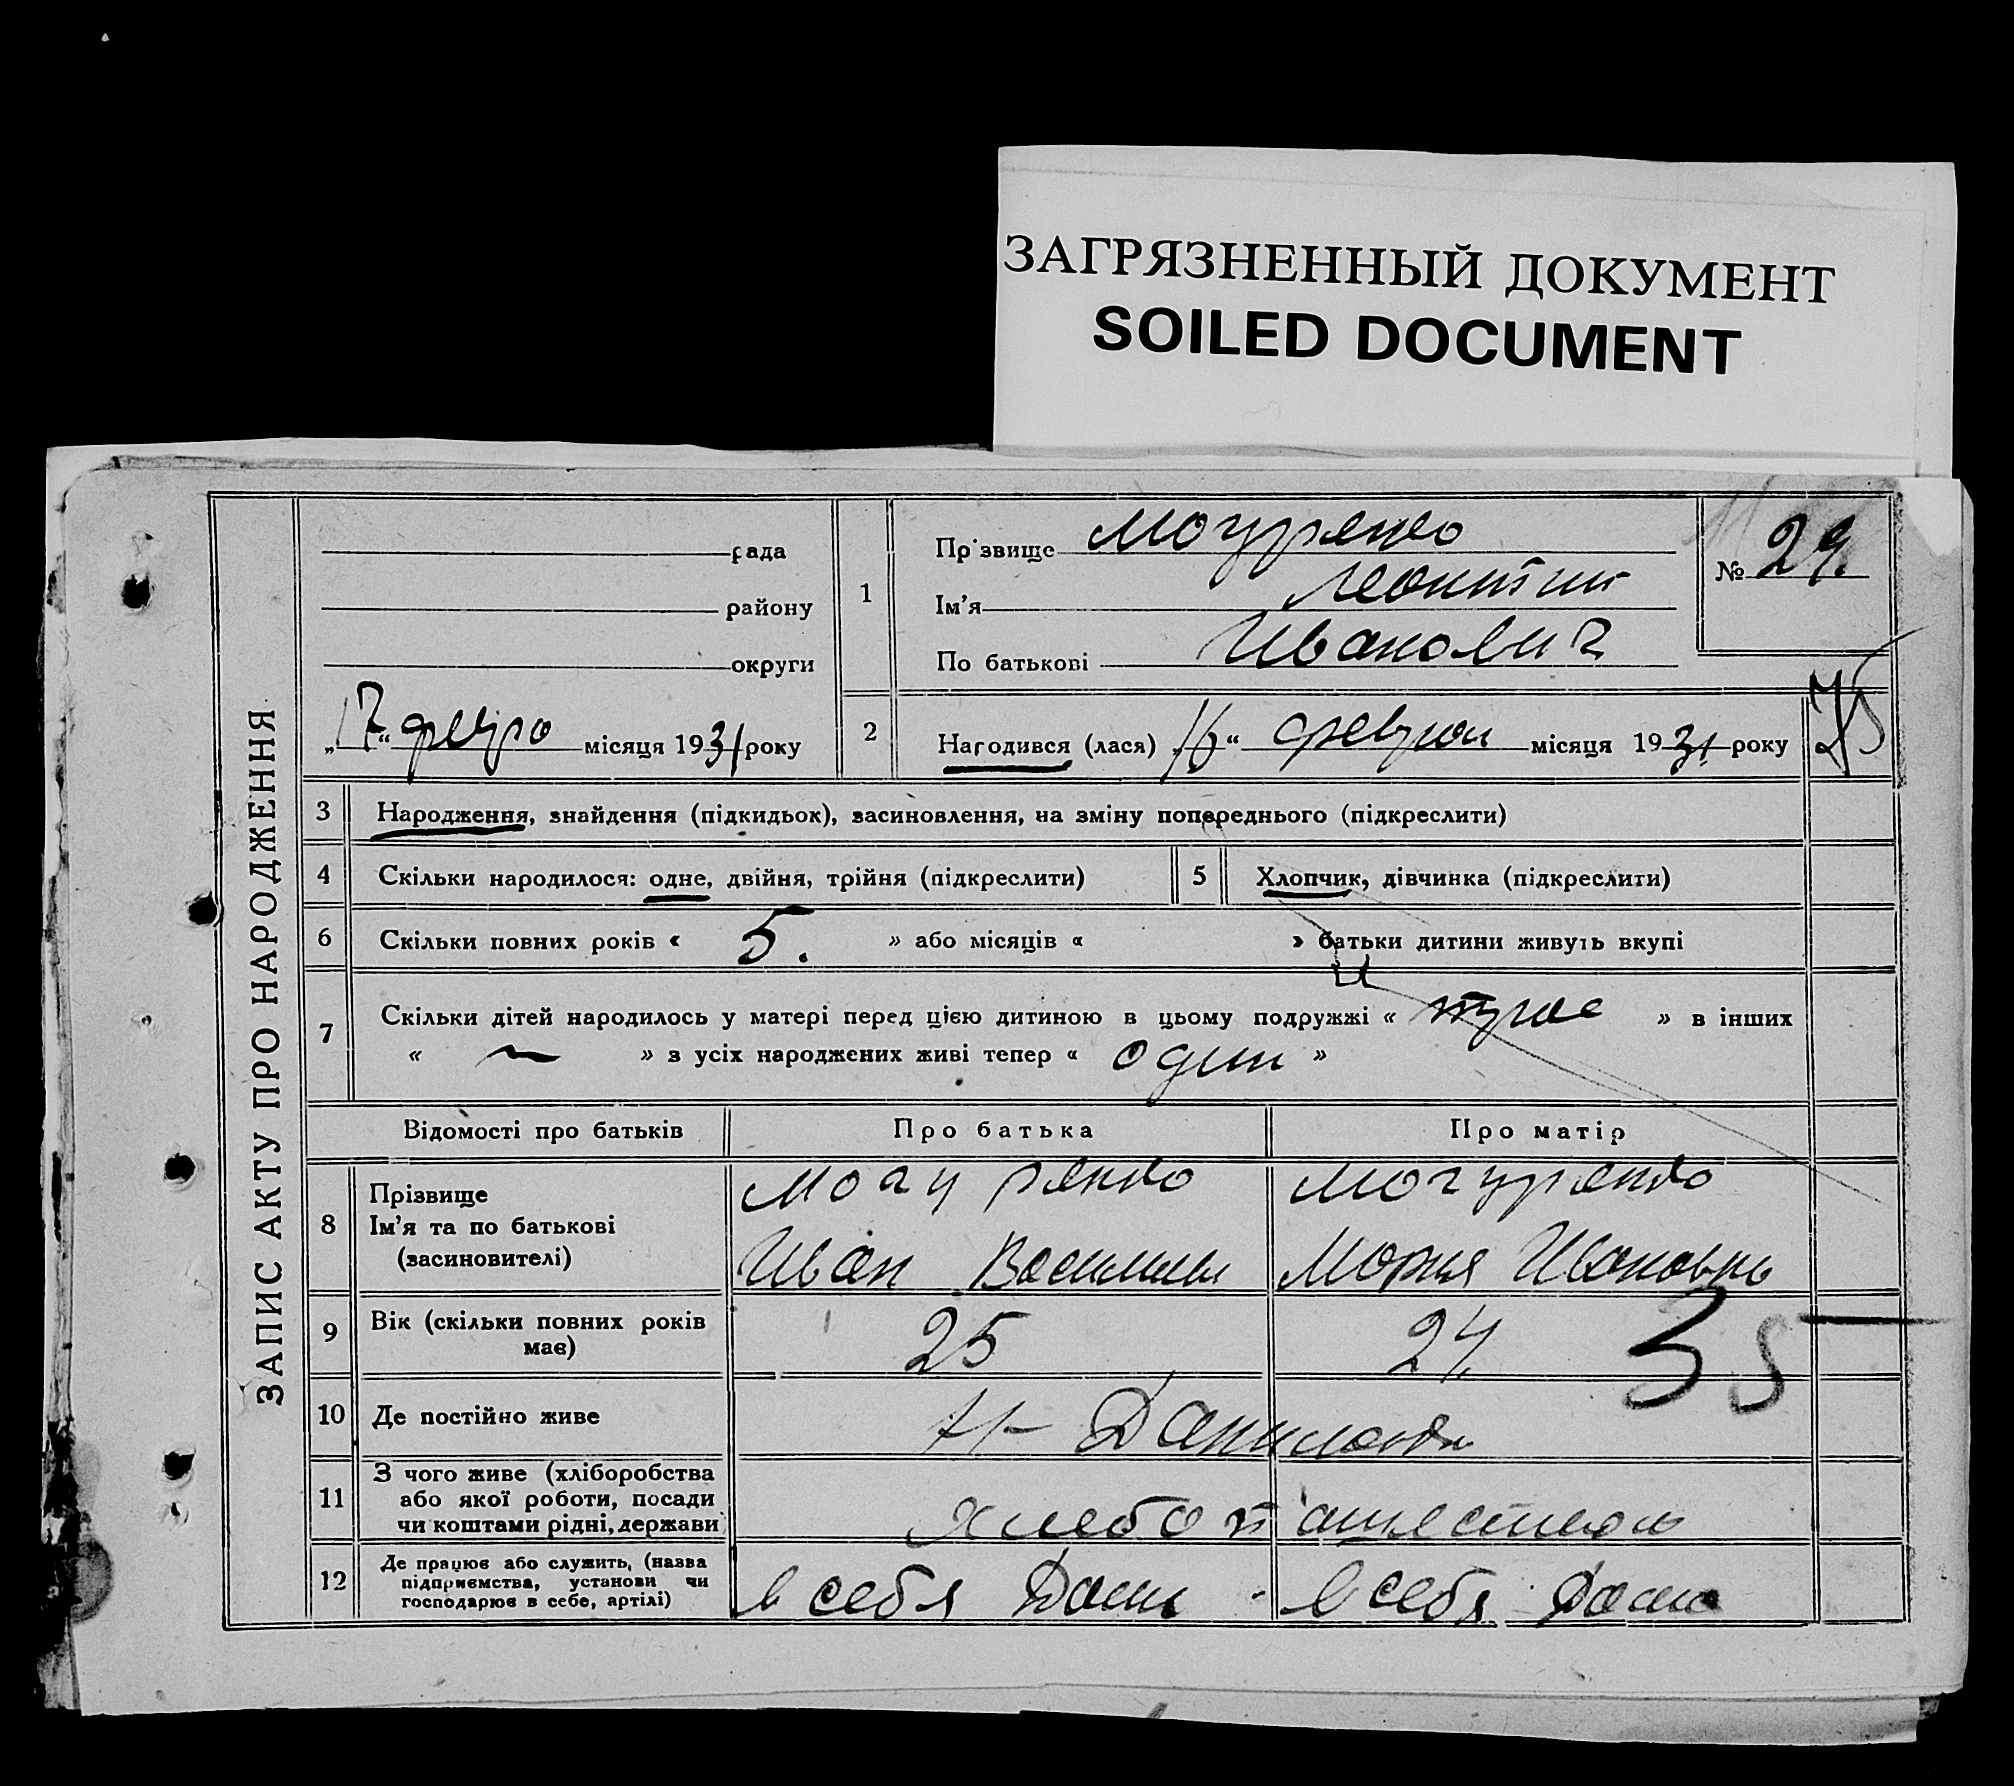 ЗАГРЯЗНЕННЫЙ ДОКУМЕНТ
SOILED DOCUMENT
ЗАПИС АКТУ ПРО НАРОДЖЕННЯ
рада
району
округи
„17“ февро місяця 1931 року
1
Прізвище Могуренко
Ім'я
По батькові Иванович
№ 29.
2 Народився (лася) „16“ феврол місяця 1931 року
75
3 Народження, знайдення (підкидьок), засиновлення, на зміну попереднього (підкреслити)
4 Скільки народилося: одне, двійня, трійня (підкреслити)
5 Хлопчик, дівчинка (підкреслити)
6 Скільки повних років « 5. » або місяців « » батьки дитини живуть вкупі
7 Скільки дітей народилось у матері перед цією дитиною в цьому подружжі « » в інших
« — » з усіх народжених живі тепер « один »
Відомості про батьків
Про батька
Про матір
8 Прізвище
Ім'я та по батькові
(засиновителі)
Могуренко
Иван Васильев
Могуренко
Мория Ивановна
9 Вік (скільки повних років
має)
25
24.
35
10 Де постійно живе
Н- Даниловка
11 З чого живе (хліборобства
або якої роботи, посади
чи коштами рідні, держави
хлебопашеством
12 Де працює або служить, (назва
підприємства, установи чи
господарює в себе, артілі)
в себя Дома
в себя Дома